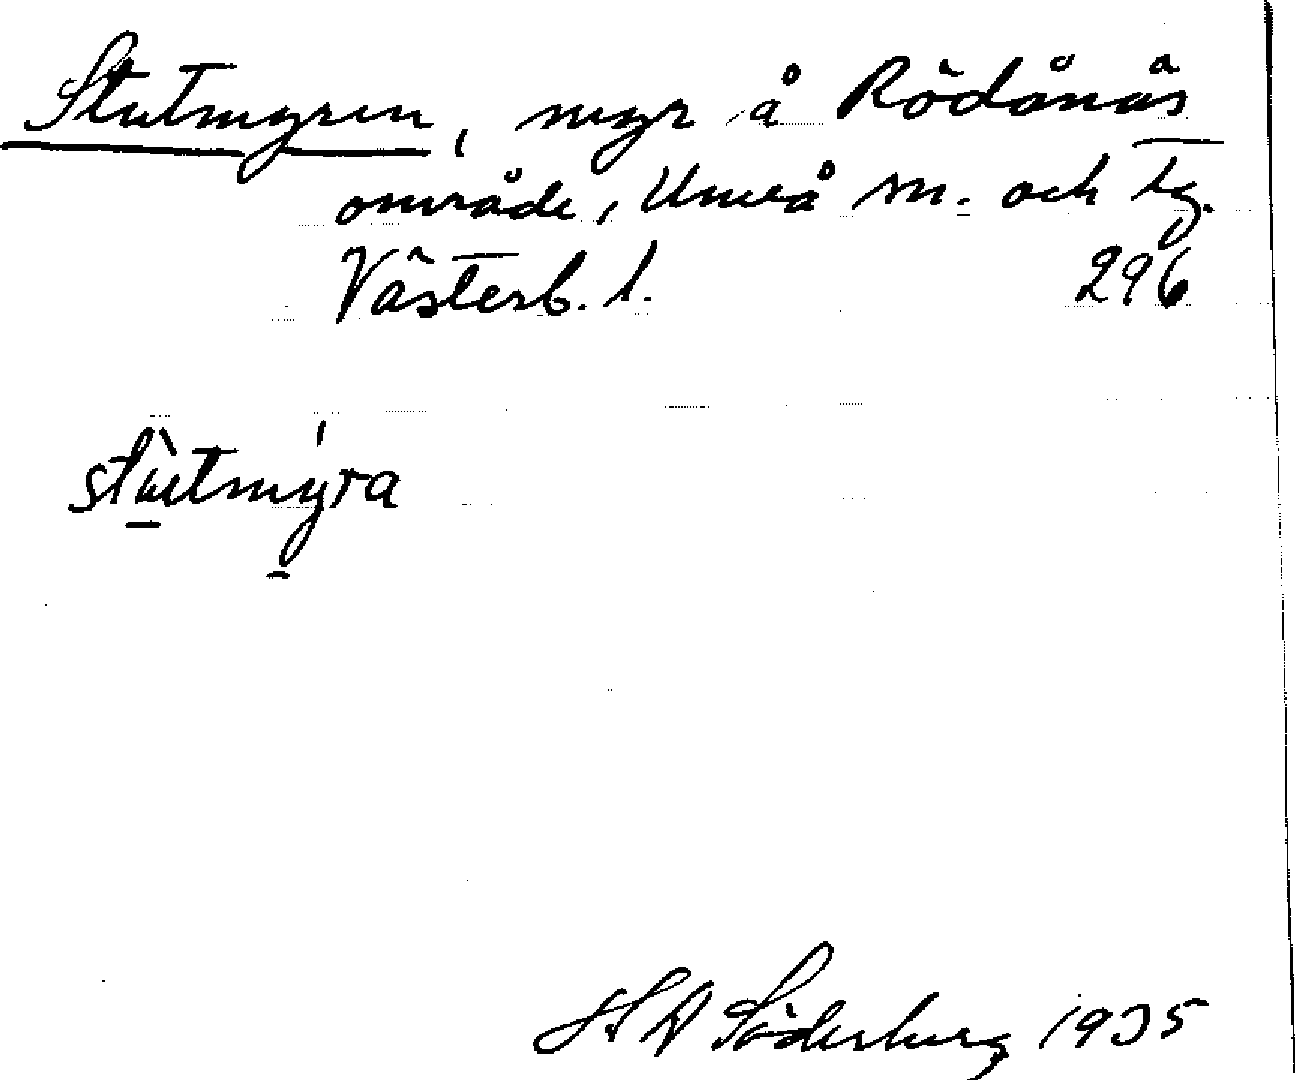 Stutmyren, myr å Rödånäs
område, Umeå sn. och tg.
Västerb. l. 296
stùtmýra
Söderberg 1935